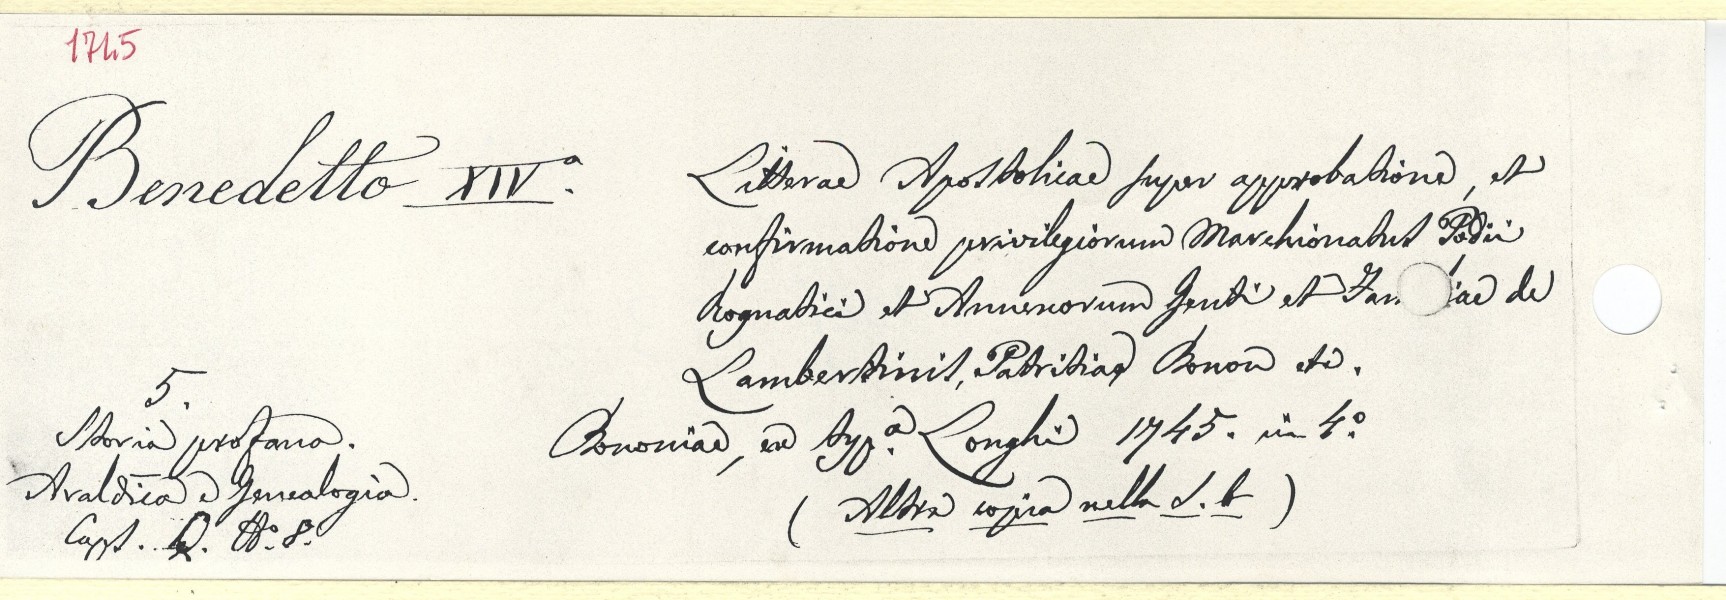 1745
Benedetto XIVº.
Litterae Apostolicae super approbatione, et
confirmatione privilegiorum Marchionatus Podii
Rognatici et Annexorum Genti et Fam iae de
Lambertinis, Patritiae Bonon etc.
Bononiae, ex typ.ª Longhi 1745. in 4º.
(Altra copia nella S. b)
5.
Storia profana.
Araldica e Genealogia.
Caps. Nº. 8.